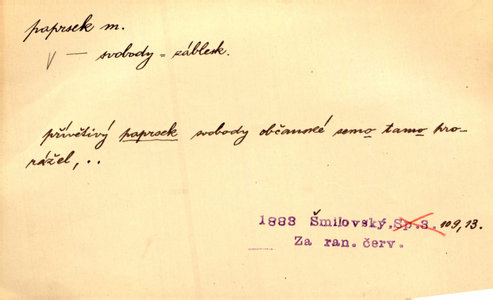 paprsek m.
v — svobody = záblesk.
přívětivý paprsek svobody občanské semo tamo pro-
rážel, ..
1883 Šmilovský. Sp. 3. 109, 13.
Za ran. červ.